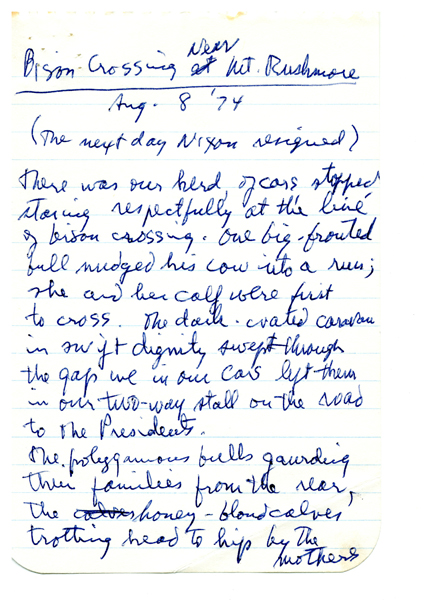 Near
Bison Crossing at Mt. Rushmore
Aug. 8 '74
(The next day Nixon resigned)
There was our herd, of cars stopped
staring respectfully at the line
of bison crossing. One big-fronted
bull nudged his cow into a run;
she and her calf were first
to cross. The dark-coated caravan
in swift dignity swept through
the gap we in our cars left them
in our two-way stall on the road
to the Presidents.
The polygamous bulls gaurding
their families from the rear,
the calves honey-blond calves
trotting head to hip by the
mothers